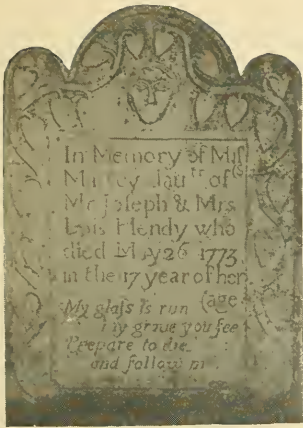 In Memory of Miſs
Mercy Dautr of
Mr Joſeph & Mrs
Lois Hendy who
died May 26 1773
in the 17 year of her
(age
My glaſs is run
my grave you ſee
Prepare to die
and follow me